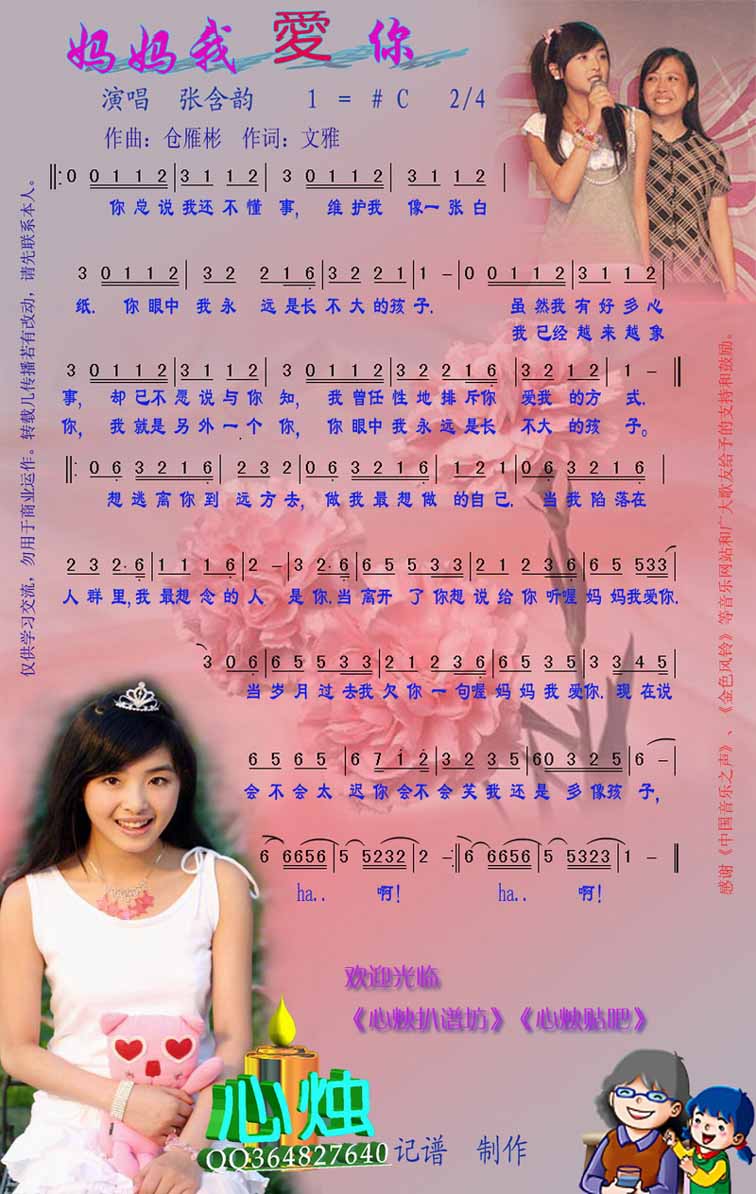 妈妈我愛你
演唱 张含韵 1 = # C 2/4
作曲: 仓雁彬 作词: 文雅
0 0 1 1 2 3 1 1 2 3 0 1 1 2 3 1 1 2
你总说我还不懂事, 维护我 像一张白
3 0 1 1 2 3 2 2 1 6 3 2 2 1 1 - 0 0 1 1 2 3 1 1 2
纸. 你眼中 我永 远是长不大的孩子. 虽然我有好多心
我已经越来越象
3 0 1 1 2 3 1 1 2 3 0 1 1 2 3 2 2 1 6 3 2 1 2 1 -
事, 却已不愿说与你知, 我曾任性地排斥你 爱我的方式.
你, 我就是另外一个你, 你眼中我永远是长 不大的孩子。
0 6 3 2 1 6 2 3 2 0 6 3 2 1 6 1 2 1 0 6 3 2 1 6
想逃离你到远方去, 做我最想做的自己. 当我陷落在
2 3 2· 6 1 1 1 6 2 - 3 2· 6 6 5 5 3 3 2 1 2 3 6 6 5 533
人群里,我最想念的人 是你.当离开了你想说给你听喔妈妈我爱你.
3 0 6 6 5 5 3 3 2 1 2 3 6 6 5 3 5 3 3 3 4 5
当岁月过去我欠你一句喔妈妈我爱你.现在说
6 5 6 5 6 7 1 2 3 2 3 5 6 0 3 2 5 6 -
会不会太迟你会不会笑我还是多像孩子,
6 6656 5 5232 2 - 6 6656 5 5323 1 -
ha.. 啊! ha.. 啊!
仅供学习交流, 勿用于商业运作。转载几传播若有改动, 请先联系本人。
感谢《中国音乐之声》、《金色风铃》等音乐网站和广大歌友给予的支持和鼓励。
欢迎光临
《心烛扒谱坊》《心烛贴吧》
心烛
QQ364827640
记谱 制作